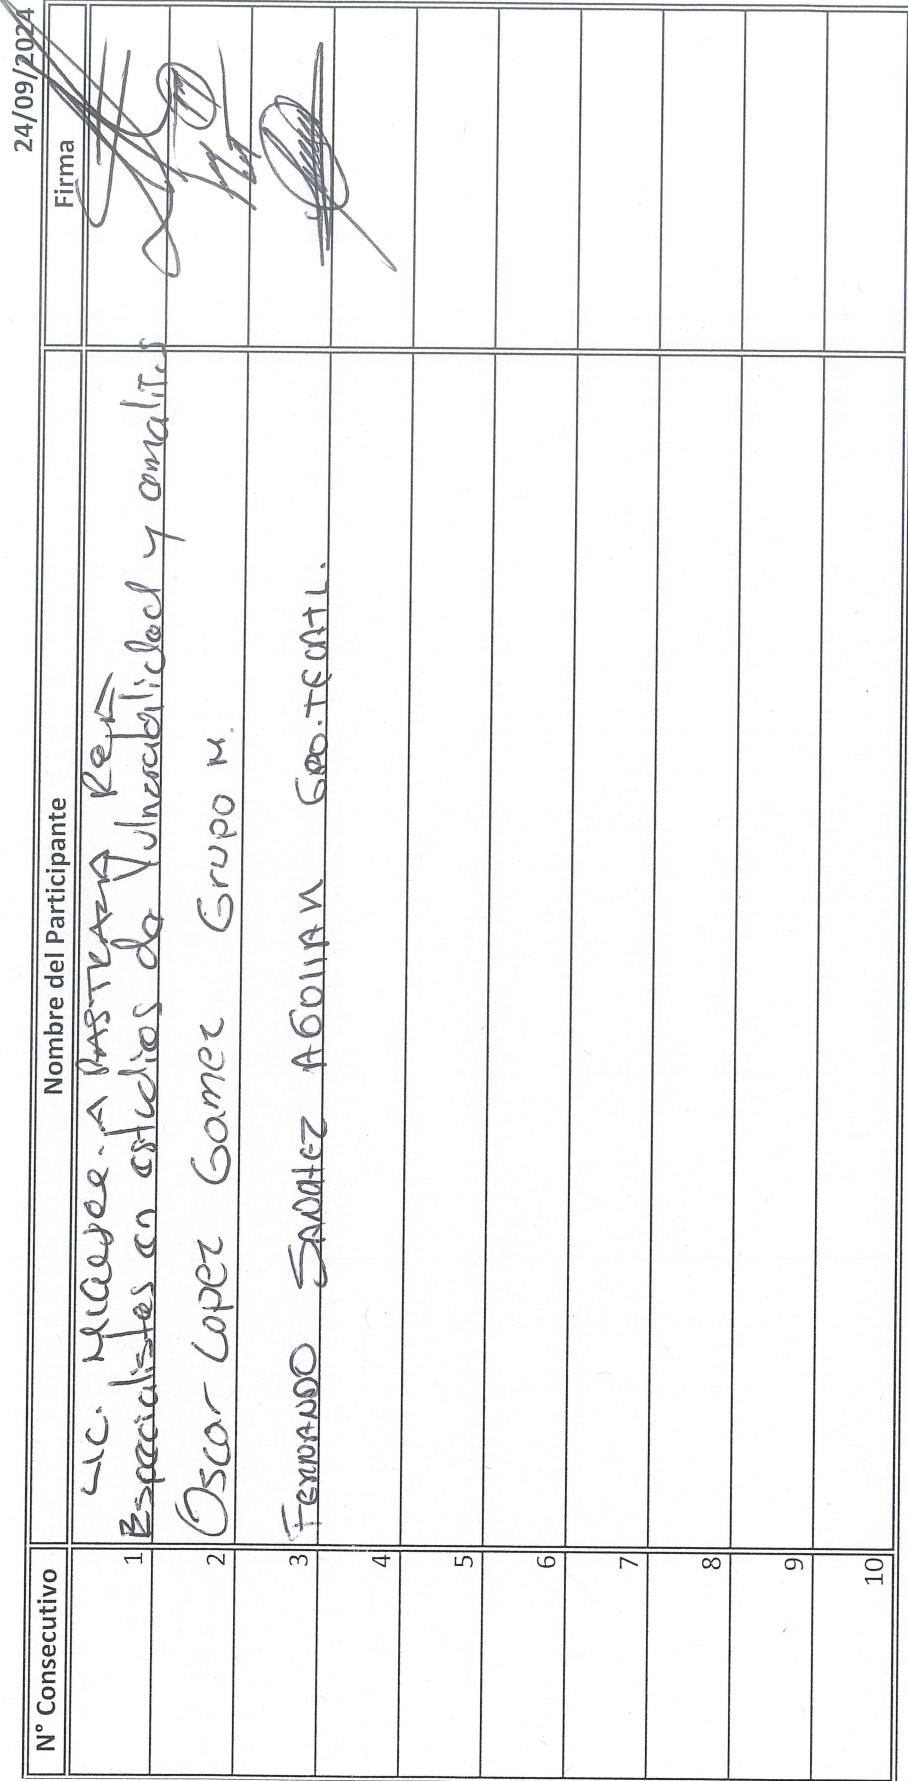 24/09/2024
N° Consecutivo Nombre del Participante Firma
LIC. A PASTRANA
1 Especialistas en estudios de Vulnerabilidad y
2 Oscar Lopez Gamez Grupo M.
3 FERNANDO SANCHEZ AGUILAR GPO. TECATL.
4
5
6
7
8
9
10